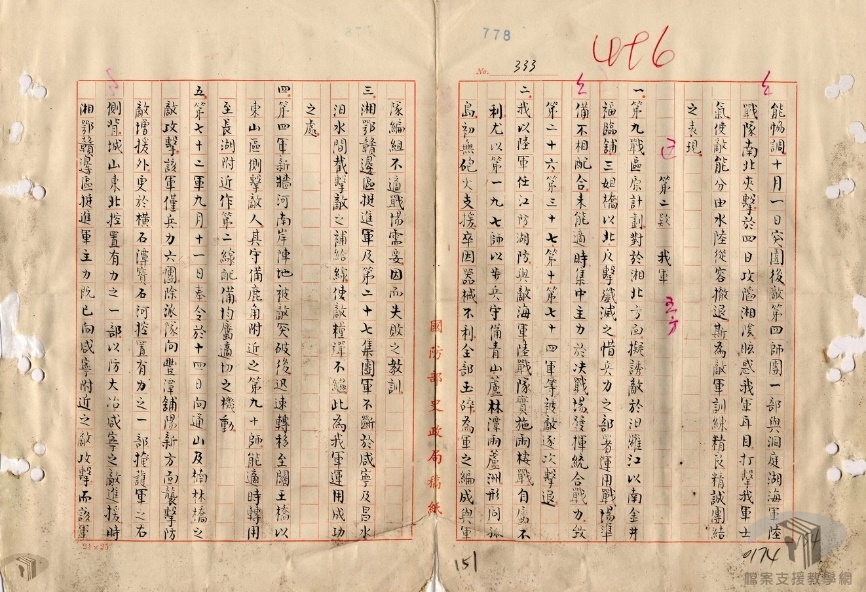 778
496
No. 333
能暢調十月一日突圍後敵第四師團一部與洞庭湖海軍陸
戰隊南北夾擊於四日攻陷湘潰眩惑我軍耳目打擊我軍士
氣使敵能分由水陸從容撤退斯為敵軍訓練精良精誠團結
之表現
第二款 我軍
一、第九戰區原計劃對於湘北方面擬誘敵於汨羅江以南金井
福臨鋪三姐橋以北反擊殲滅之惜兵力之部署運用戰場準
備不相配合未能適時集中主力於決戰場發揮統合戰力致
第二十六第三十七第十第七十四軍等被敵逐次擊退
二、我以陸軍任江防湖防與敵海軍陸戰隊實施兩棲戰自屬不
利尤以第一九七師以步兵守備青山蘆林潭兩蘆洲形同孤
島初無砲火支援卒因器械不利全部玉碎為軍之編成與軍
隊編組不適戰場需要因而失敗之教訓
三、湘鄂贛邊區挺進軍及第二十七集團軍不斷於咸寧及昌水
汨水間截擊敵之補給線使敵糧彈不繼此為我軍運用成功
之處
四、第四軍新牆河南岸陣地被敵突破後迅速轉移至關王橋以
東山區側擊敵人其守備鹿角附近之第九十師能適時轉用
至長湖附近作第二線配備均屬適切之機動
五、第七十二軍九月十一日奉令於十四日向通山及楠林橋之
敵攻擊該軍僅兵力六團除派隊向豐潭鋪陽新方面襲擊防
敵增援外更於橫石潭寶石河控置有力之一部掩護軍之右
側背城山東北控置有力之一部以防大冶咸寧之敵進援時
湘鄂贛邊區挺進軍主力既已向咸寧附近之敵攻擊而該軍
國防部史政局稿紙
25×25
151
0174
檔案支援教學網